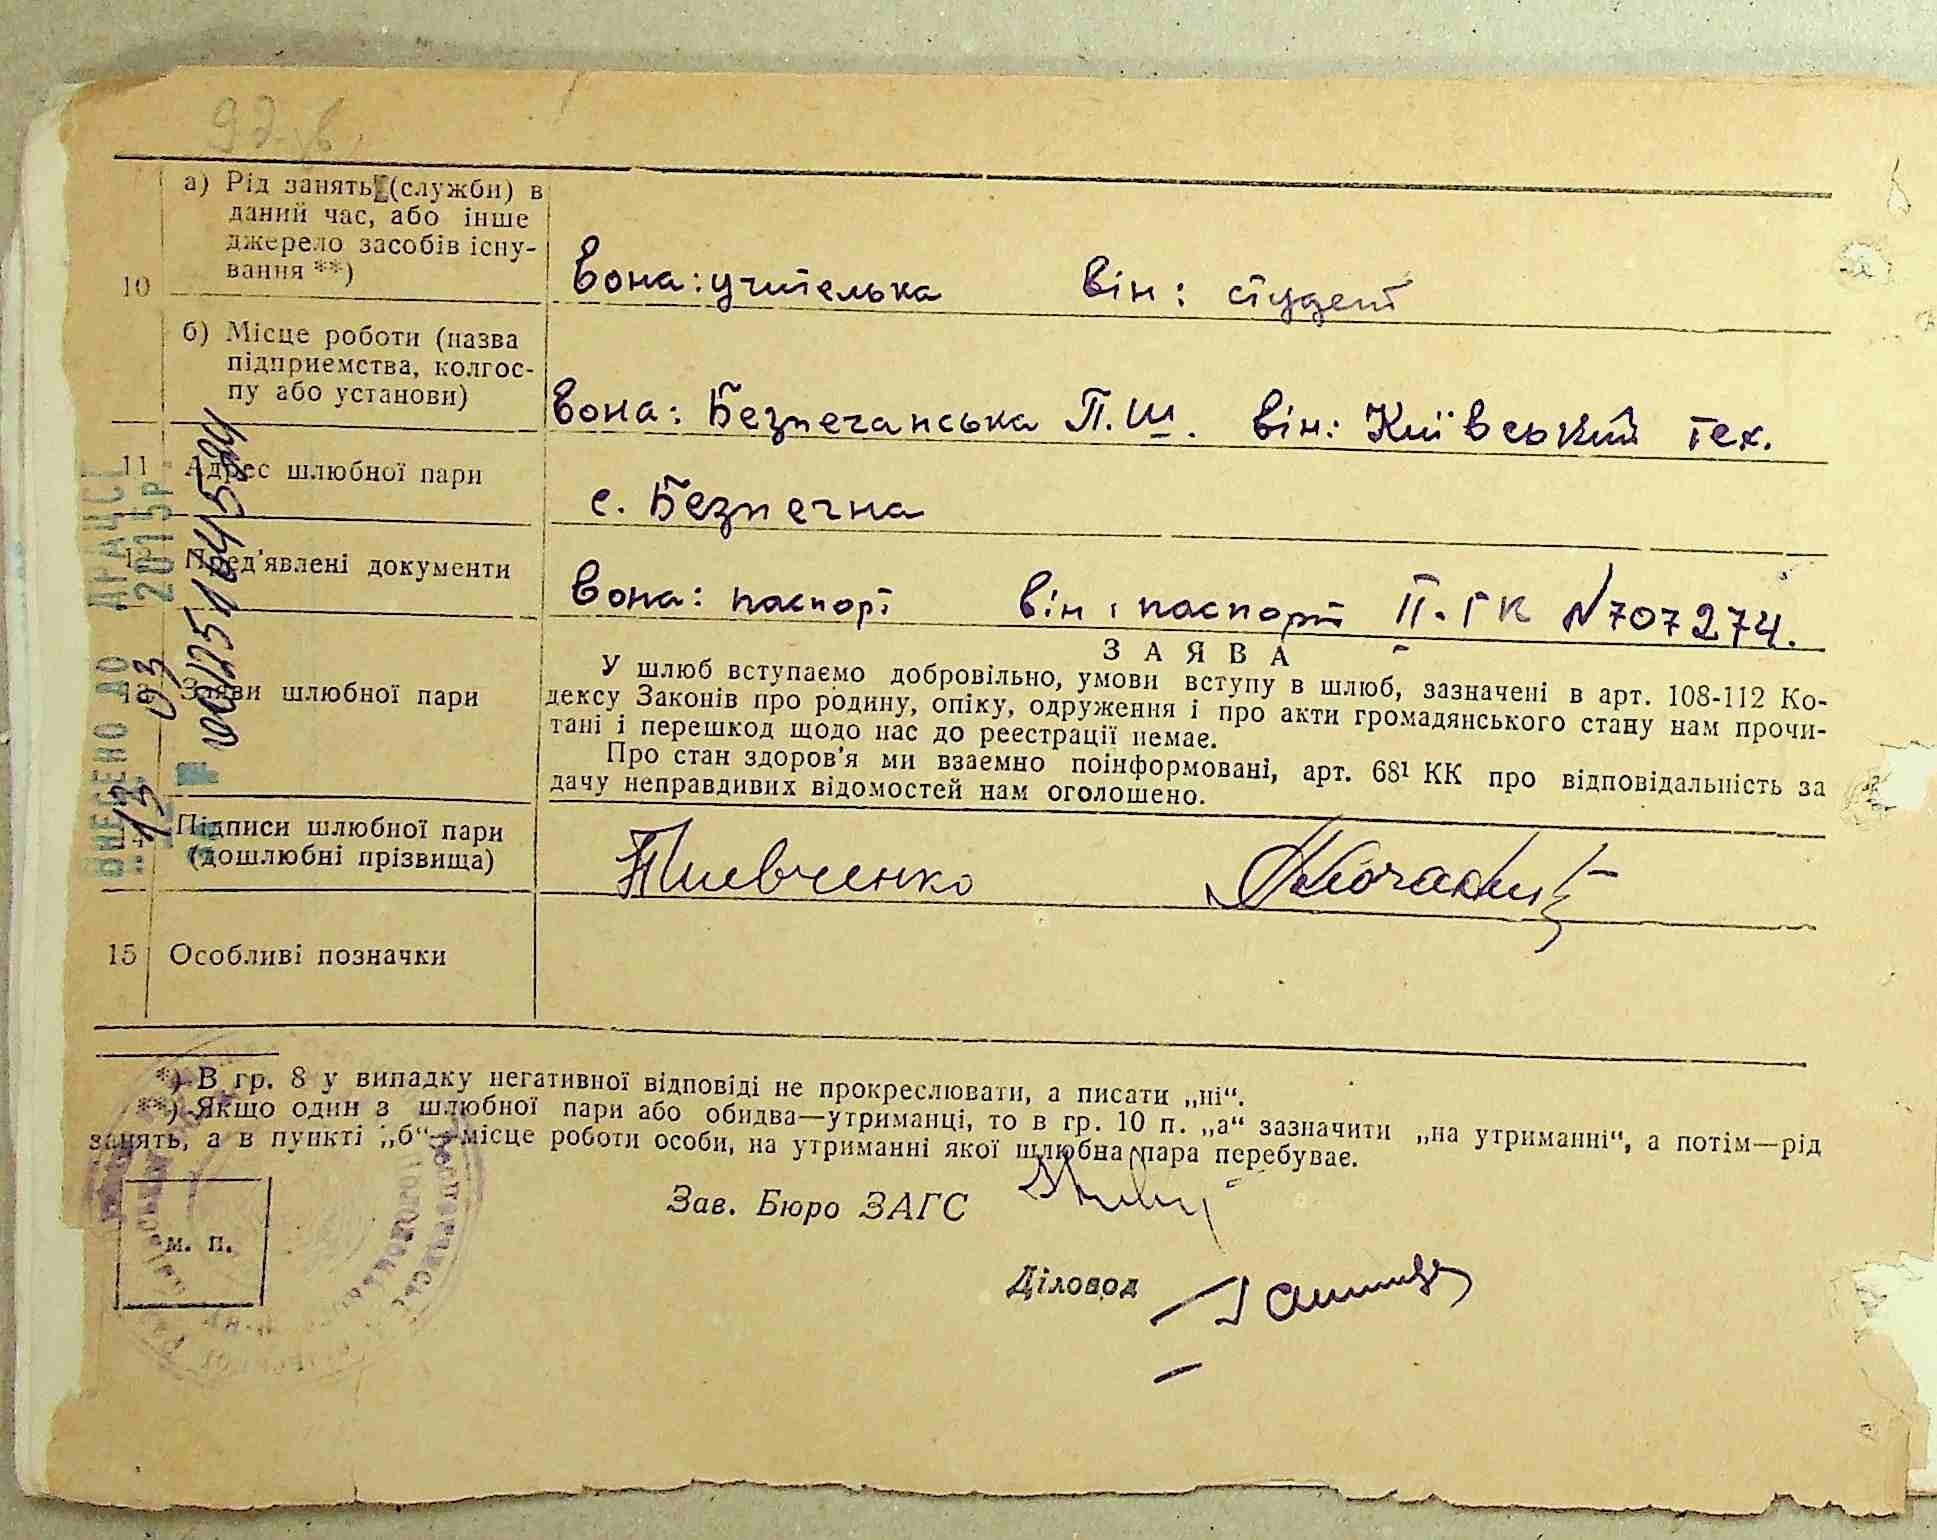 а) Рід занять (служби) в
даний час, або інше
джерело засобів існу-
вання **)
10
Вона: учителька Він: студент
б) Місце роботи (назва
підприємства, колгос-
пу або установи)
Вона: Безпечанська П.Ш. Він: Київський тех.
11 Адрес шлюбної пари
с. Безпечна
Пред'явлені документи
Вона: паспорт Він: паспорт II-ГК №707274.
Заяви шлюбної пари
ЗАЯВА
У шлюб вступаємо добровільно, умови вступу в шлюб, зазначені в арт. 108-112 Ко-
дексу Законів про родину, опіку, одруження і про акти громадянського стану нам прочи-
тані і перешкод щодо нас до реєстрації немає.
Про стан здоров'я ми взаємно поінформовані, арт. 68¹ КК про відповідальність за
дачу неправдивих відомостей нам оголошено.
Підписи шлюбної пари
(дошлюбні прізвища)
15 Особливі позначки
ВНЕСЕНО ДО ДРАЦСГ
13 03 2015р.
*) В гр. 8 у випадку негативної відповіді не прокреслювати, а писати „ні“.
**) Якщо один з шлюбної пари або обидва—утриманці, то в гр. 10 п. „а“ зазначити „на утриманні“, а потім—рід
занять, а в пункті „б“—місце роботи особи, на утриманні якої шлюбна пара перебуває.
Зав. Бюро ЗАГС
м. п.
Діловод